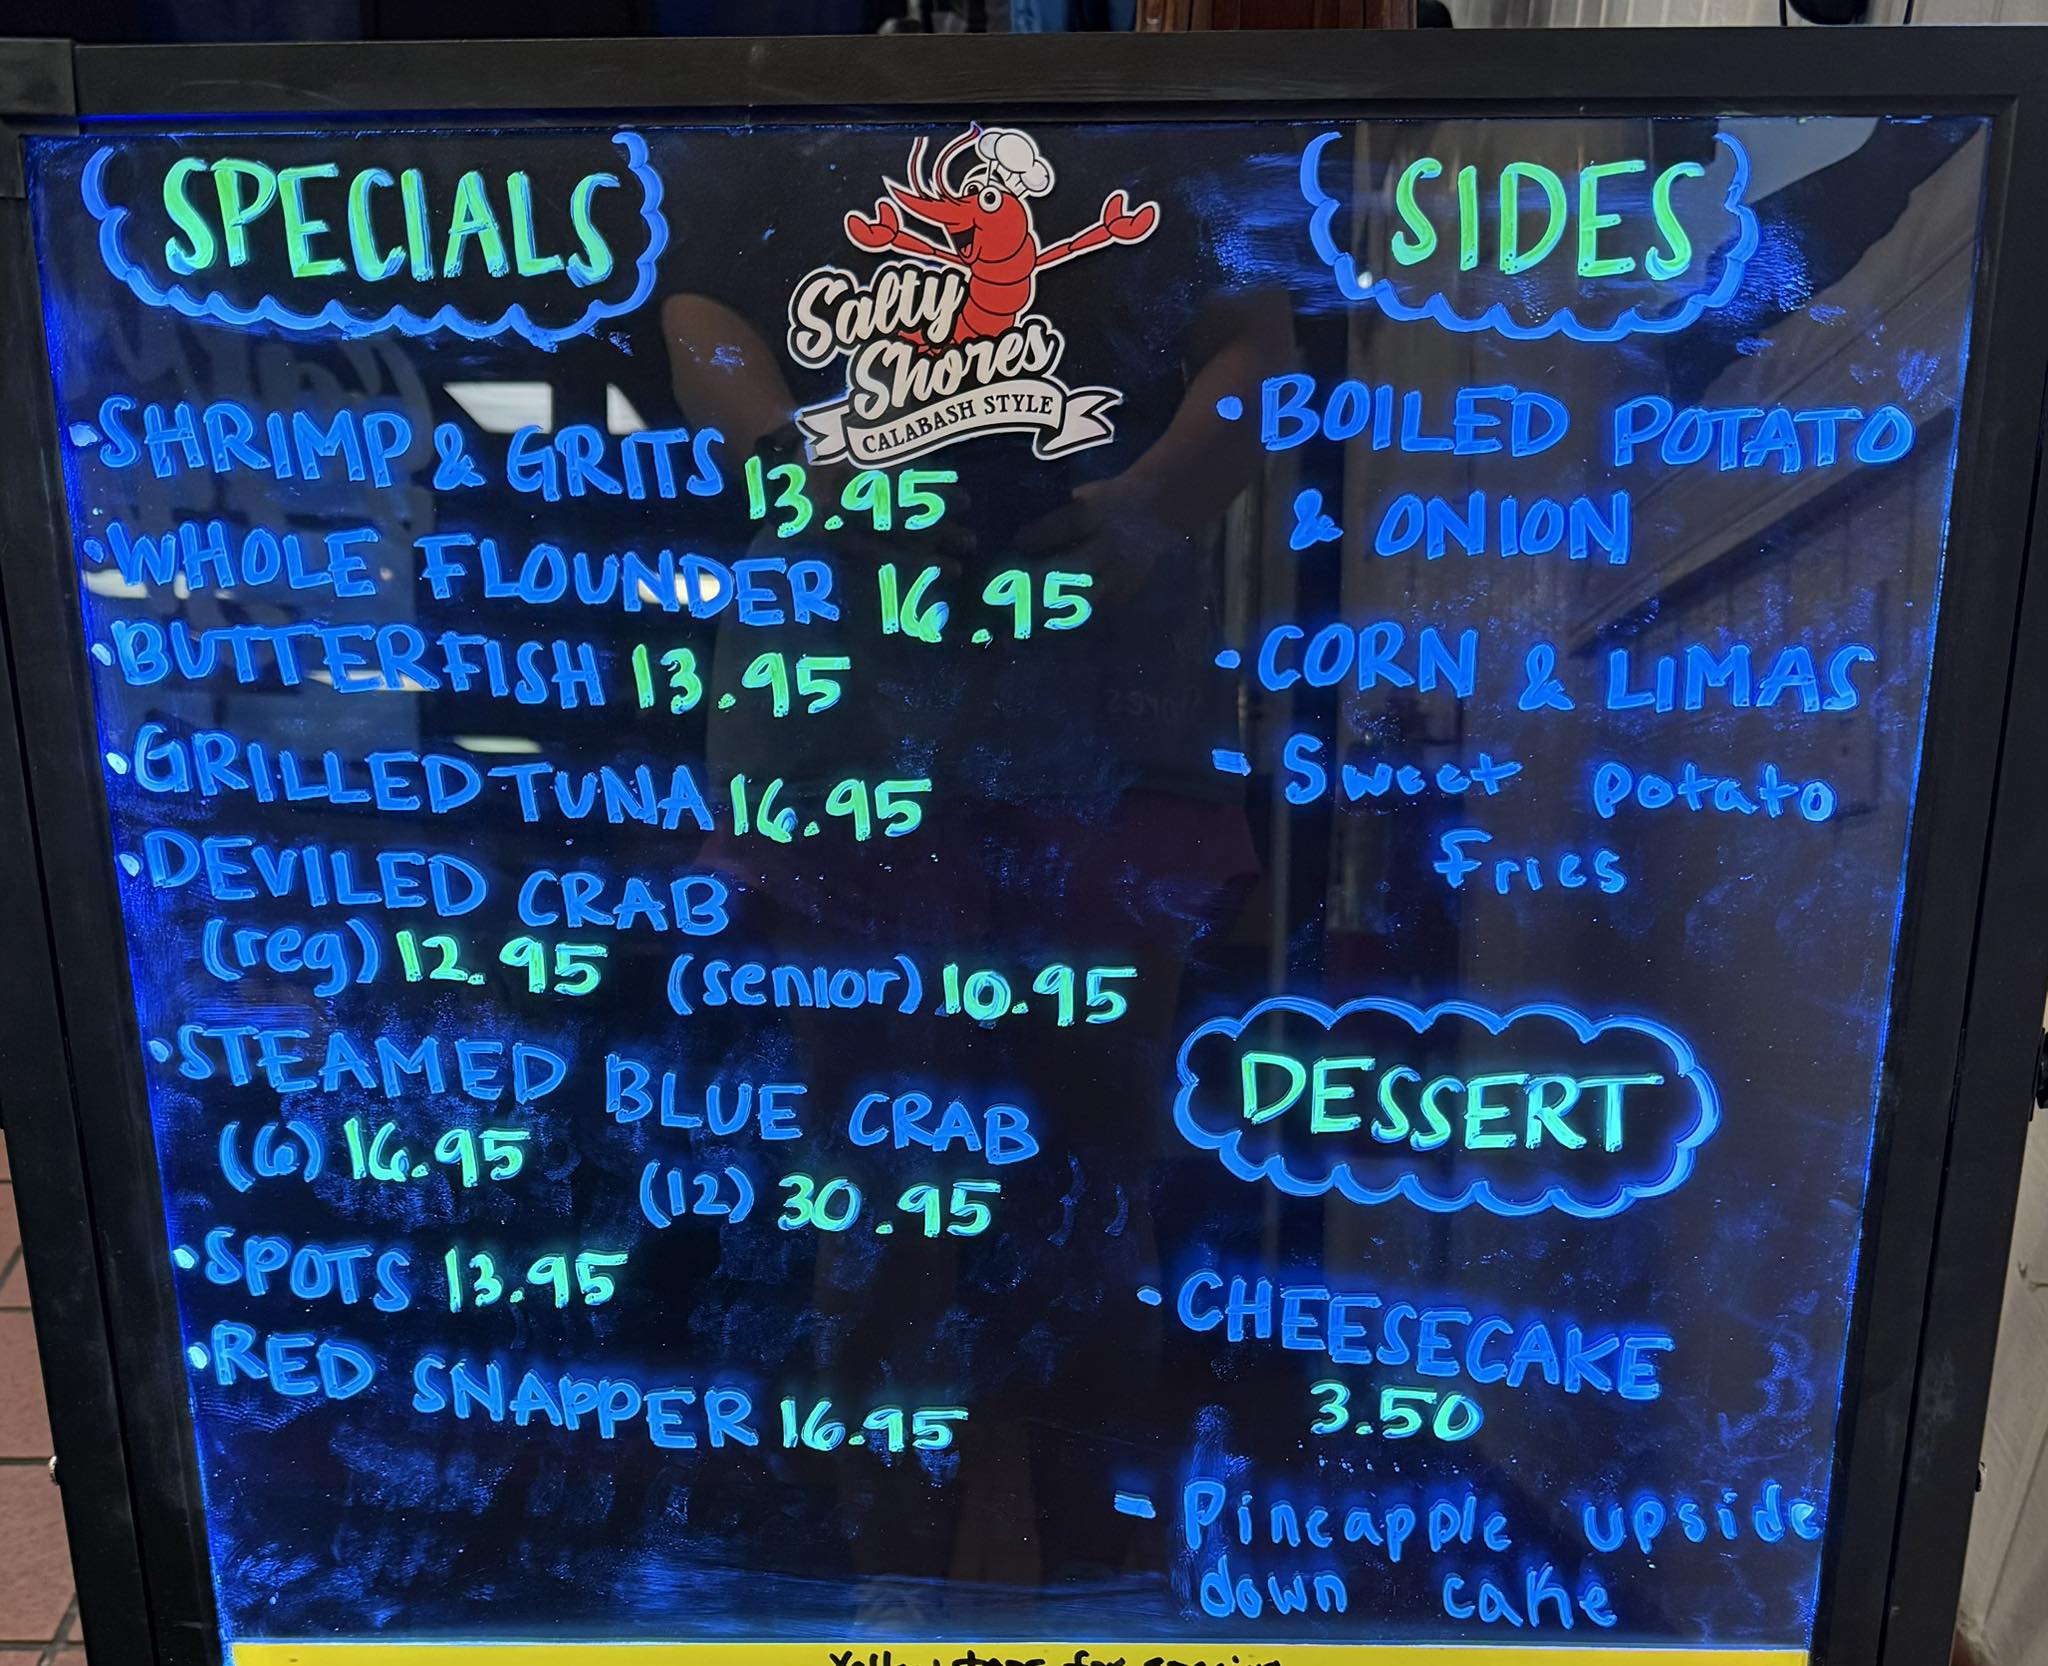 SPECIALS
Salty
Shores
CALABASH STYLE
• SHRIMP & GRITS 13.95
• WHOLE FLOUNDER 16.95
• BUTTERFISH 13.95
• GRILLED TUNA 16.95
• DEVILED CRAB
(reg) 12.95 (senior) 10.95
• STEAMED BLUE CRAB
(6) 16.95 (12) 30.95
• SPOTS 13.95
• RED SNAPPER 16.95
SIDES
• BOILED POTATO
& ONION
• CORN & LIMAS
- Sweet potato
fries
DESSERT
• CHEESECAKE
3.50
- Pineapple upside
down cake